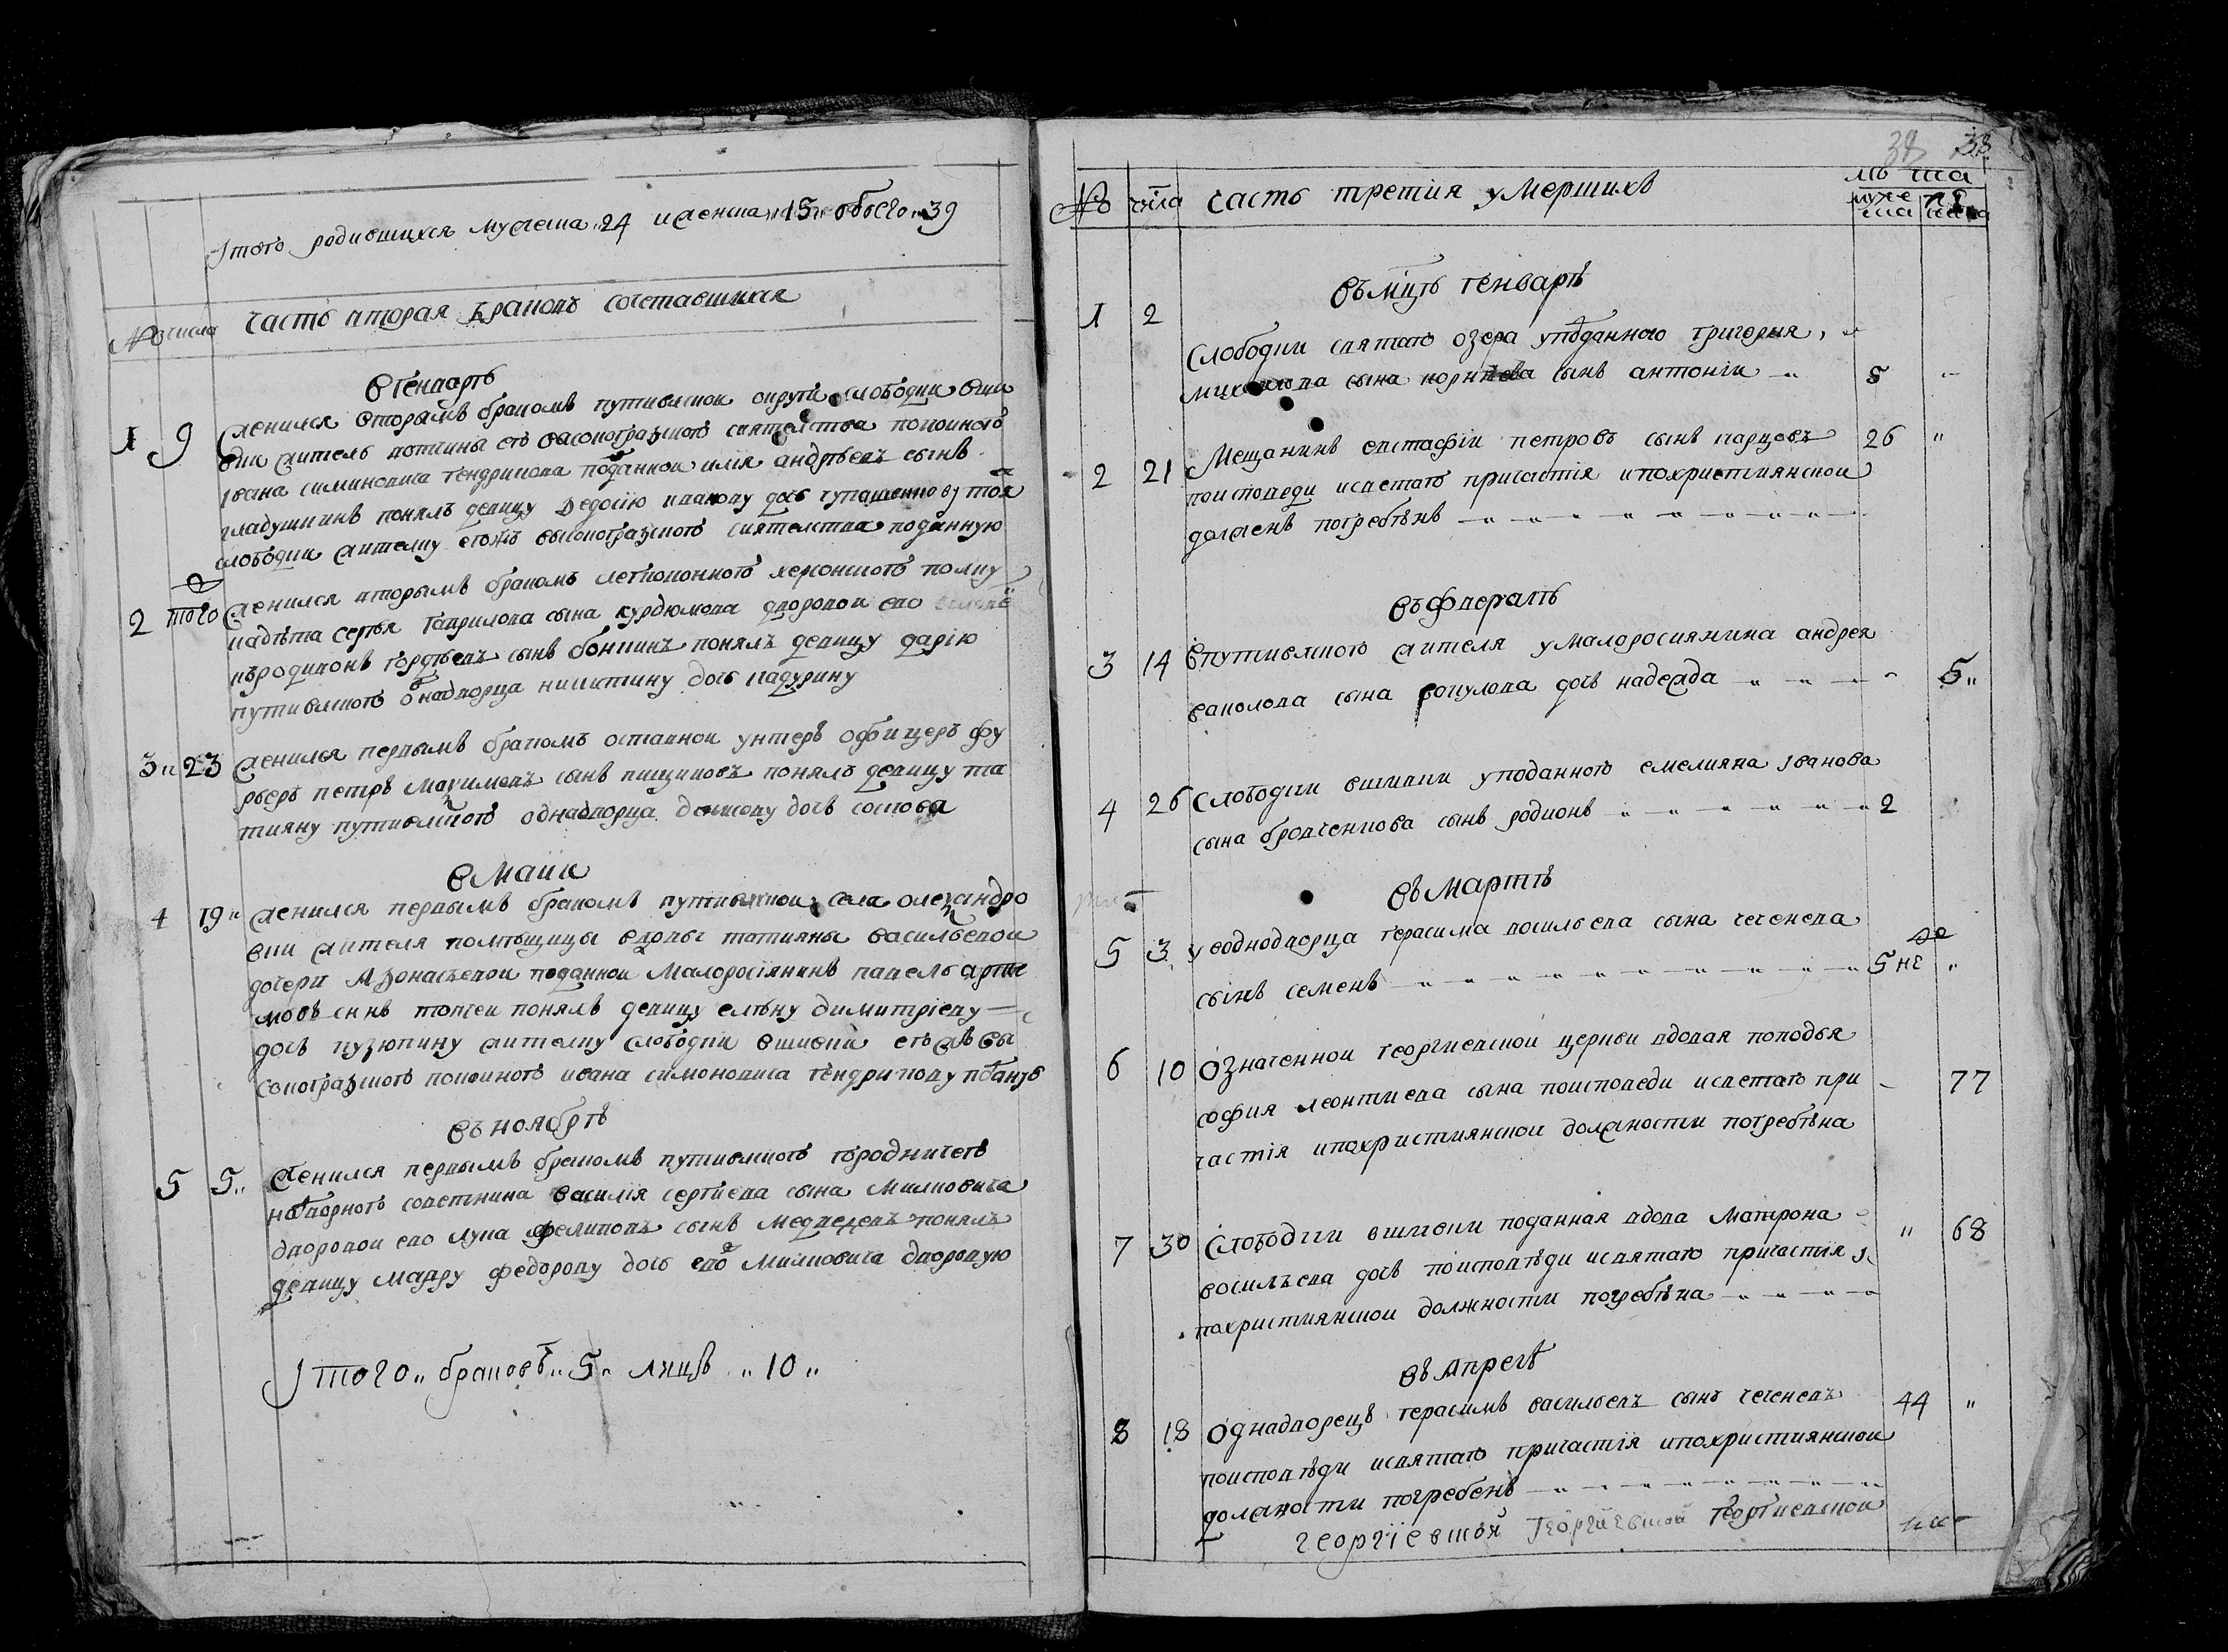 Итого родившихся мужеска 24 и женска 15 обоего 39
№ числа Часть вторая браковъ сочетавшихся
В генваръ
1 9 Женился вторымъ бракомъ путивлской округи слободки вши
вки житель вотчины его высокографского сиятелства покоиного
ивана симиновича гендрикова подданной илія андрѣевъ сынъ
гладушкинъ понялъ девицу Ѳедосію иванову дочь тоя ж
слободки жителку его ж высокографского сиятелства подданную
2 того Женился вторымъ бракомъ легкоконного херсонского полку
кадѣта сергѣя гаврилова сына курдюмова дворовои ево
иродионъ гордѣевъ сынъ бонкинъ понялъ девицу дарію
путивлского однадворца никитину дочь кадурину
3 23 Женился первымъ бракомъ оставнои унтеръ офицеръ фу
рьеръ петръ максимовъ сынъ пищиковъ понялъ девицу та
тияну путивлского однадворца дочь
В Маии
4 19 Женился первымъ бракомъ путивлскои села олександро
вки жителя помѣщицы вдовы татияны васильевои
дочери Аѳонасъевои подданнои Малоросіянинъ павелъ арте
мовъ синъ понялъ девицу елѣну димитріеву
дочь пузюпину жителку слободки вшивки его ж вы
сокографского покоиного ивана симоновича гендрикову подданую
Въ ноябрѣ
5 5 Женился первымъ бракомъ путивлского городничего
надворного советника василія сергиева сына Милковича
дворовои ево лука филиповъ сынъ медведевъ понялъ
девицу марѳу федорову дочь ево Милковича дворовую
Итого браковъ 5 лицъ 10
38 38
№ числа Часть третия умершихъ лѣ та
муже ска же нска
Въ мцѣ генварѣ
1 2
Слободки святаго озера у подданного григория
михаила сына корнѣева сынъ антоніи 5
2 21 Мещанинъ евстафіи петровъ сынъ карцовъ 26
поисповеди исветаго причастія ипохристиянскои
должен погребѣнъ
Въ февралѣ
3 14 В путивлского жителя у малоросиянина андрея
ваколова сына дочь надежда 5
4 26 Слободки вшивки у поданного емелияна иванова
сына бродченкова сынъ родионъ 2
Въ мартѣ
5 3 у воднодворца герасима восильева сына чеченева
сынъ семенъ 5 нe де
6 10 Означеннои георгиевскои церкви вдовая попадья
софия леонтиева сына поисповеди исветаго при 77
частія ипохристиянскои должности погребѣна
7 30 Слободки вшивки поданная вдова матрона 68
восилъева дочь поисповѣди исвятаго причастия и
похристиянскои должности погребѣна
Въ апрелѣ
8 18 Однадворецъ герасимъ васильевъ сынъ чеченевъ 44
поисповѣди исвятаго причастія ипохристиянскои
должности погребенъ
георгіевской георгіевской георгиевской